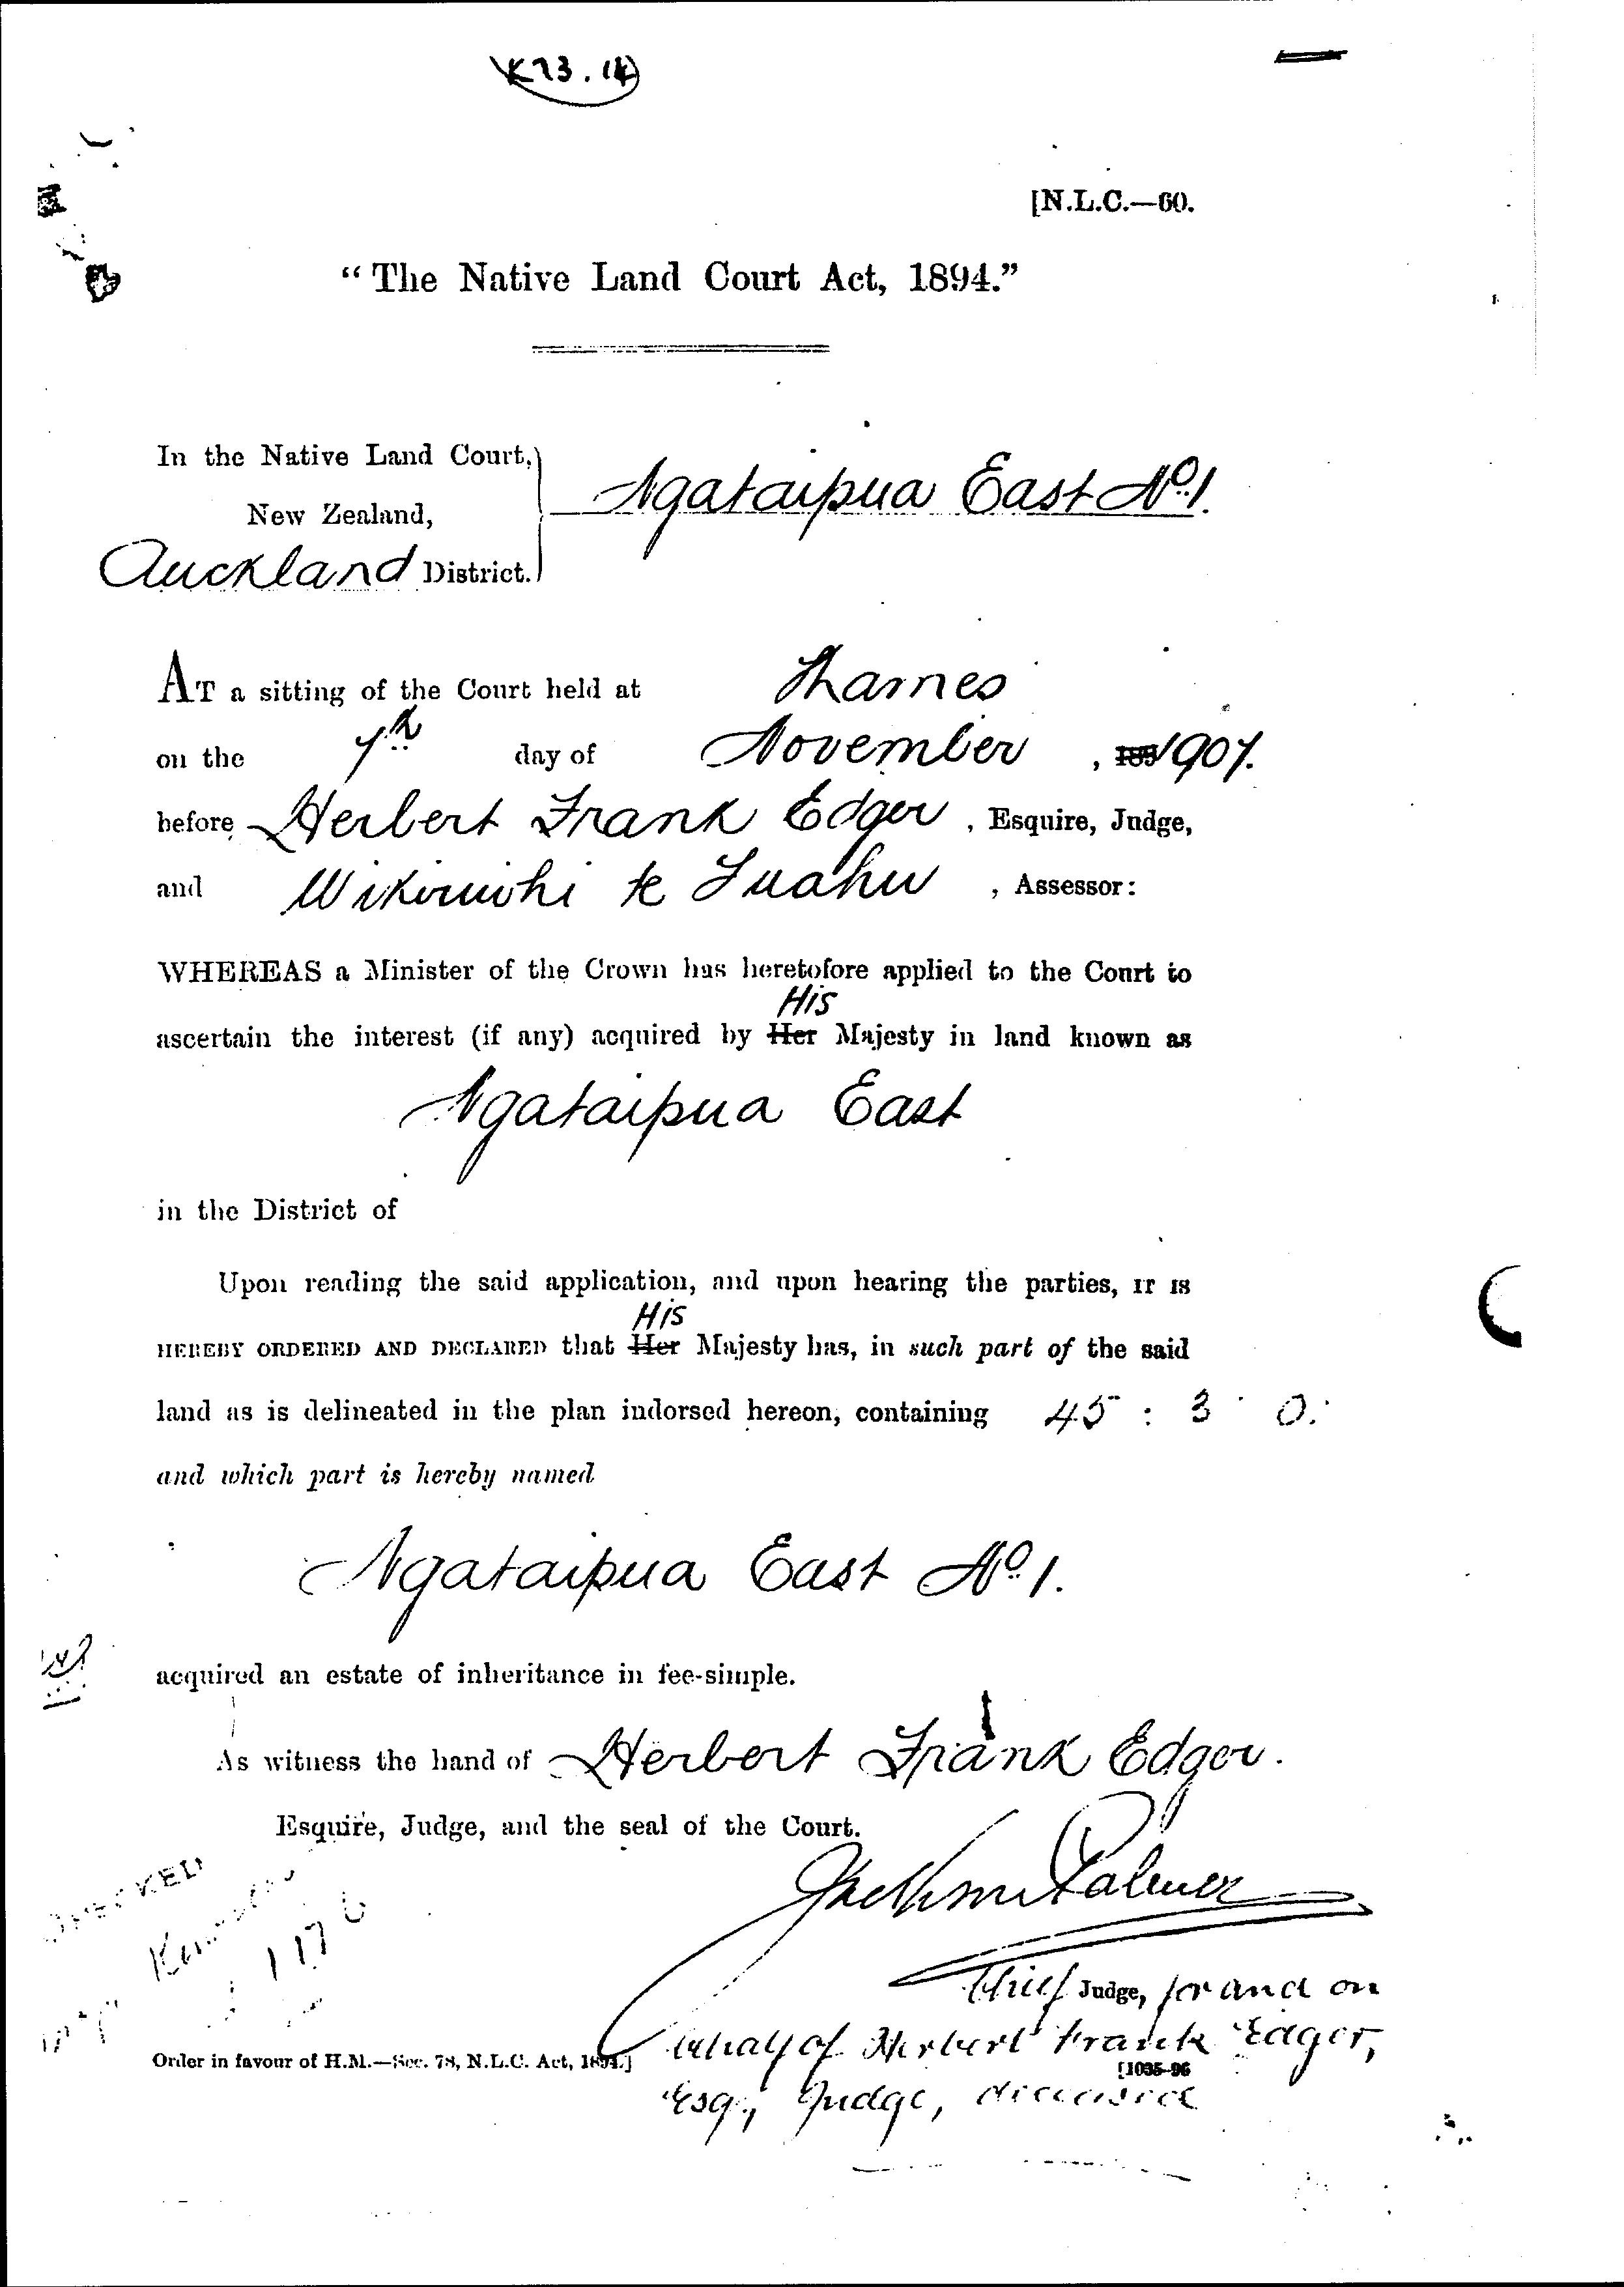 K73.14
[N.L.C.—60.
“The Native Land Court Act, 1894.”
In the Native Land Court,
New Zealand,
Auckland District.
Ngataipua East No. 1.
AT a sitting of the Court held at Thames
on the 7th day of November, 189 1907.
before Herbert Frank Edger, Esquire, Judge,
and Wikiriwhi te Tuahu, Assessor:
WHEREAS a Minister of the Crown has heretofore applied to the Court to
His
ascertain the interest (if any) acquired by Her Majesty in land known as
Ngataipua East
in the District of
Upon reading the said application, and upon hearing the parties, IT IS
His
HEREBY ORDERED AND DECLARED that Her Majesty has, in such part of the said
land as is delineated in the plan indorsed hereon, containing 45 : 3 : 0.
and which part is hereby named
Ngataipua East No. 1.
acquired an estate of inheritance in fee-simple.
As witness the hand of Herbert Frank Edger.
Esquire, Judge, and the seal of the Court.
CHECKED
Jackson Palmer
Chief Judge, for and on
behalf of Herbert Frank Edger,
Order in favour of H.M.—Sec. 78, N.L.C. Act, 1894.]
[1035-96
Esq., Judge, deceased